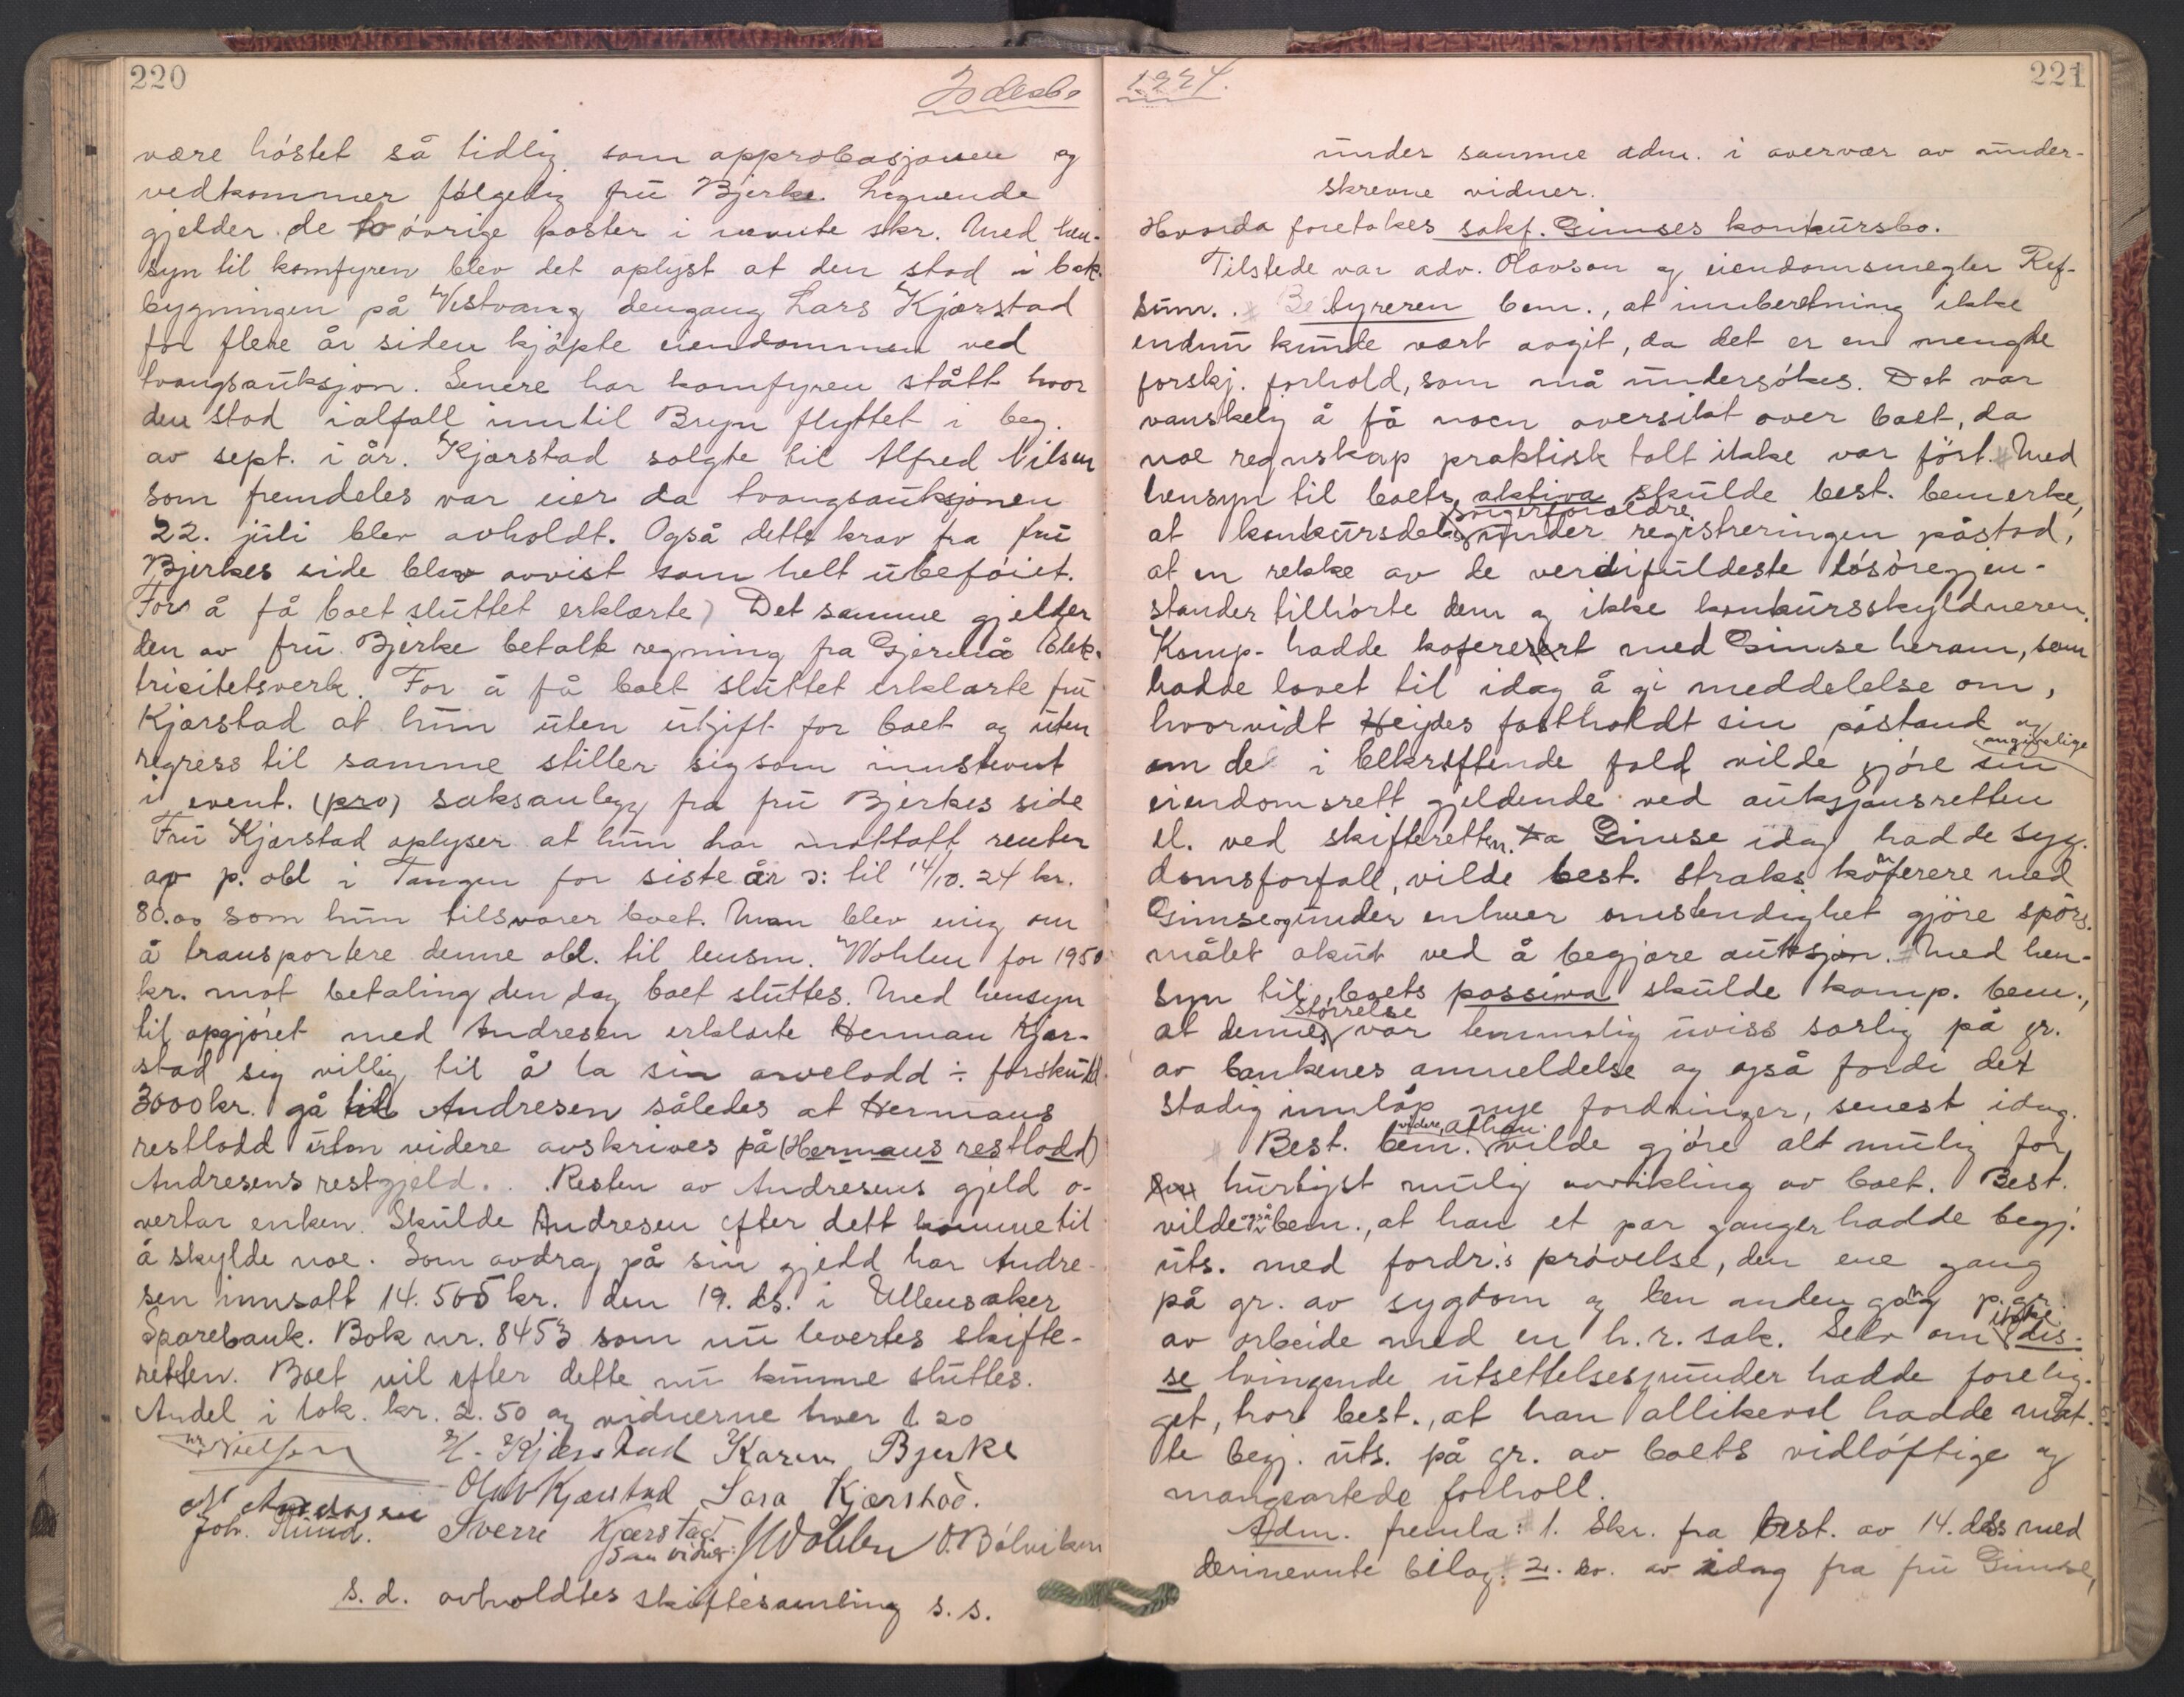 220
være höstet så tidlig som approbasjonen og
vedkommer følgelig frü Bjerke. Lignende
gjelder de to övrige poster i nevnte skr. Med hen-
syn til komfyren blev det oplyst at den stod i bak-
bygningen på Vestvang dengang Lars Kjærstad
for flere år siden kjöpte eiendommen ved
tvangsauksjon. Senere har komfyren stått hvor
den stod ialfall inntil Bryn flyttet i beg.
av sept. i år. Kjærstad solgte til Alfred Nilsen
som fremdeles var eier da tvangsauksjonen
22. juli blev avholdt. Også dette krav fra frü
Bjerkes side blev avvist som helt ubeföiet.
(For å få boet sluttet erklærte) Det samme gjelder
den av frü Bjerke betalt regning fra Gjermå Elek-
tricitetsverk. For å få boet sluttet erklærte frü
Kjærstad at hun uten utgift for boet og uten
regress til samme stiller sig som innstevnt
i event. (pro) saksanlegg fra frü Bjerkes side
Frü Kjærstad oplyser at hun har mottatt renter
av p. obl i Tangen for siste år ɔ: til 14/10. 24 kr.
80.00 som hun tilsvarer boet. Man blev enig om
å transportere denne obl. til lensm. Wohlen for 1950
kr. mot betaling den dag boet sluttes. Med hensyn
til opgjöret med Andresen erklærte Herman Kjær-
stad sig villig til å la sin arvelodd ÷ forskudd
3000 kr. gå til Andresen således at Hermans
restlodd uten videre avskrives på (Hermans restlodd)
Andresens restgjeld. . Resten av Andresens gjeld o-
vertar enken. Skulde Andresen efter dett komme til
å skylde noe. Som avdrag på sin gjeld har Andre-
sen innsatt 14.505 kr. den 19. ds. i Ullensaker
Sparebank. Bok nr. 8453 som nu levertes skifte-
retten. Boet vil efter dette nu kunne sluttes.
Andel i lok. kr. 2.50 og vidnerne hver 1.20
Nielsen H. Kjærstad Karen Bjerke
Olav Kjærstad Sara Kjærstad.
Andresen
Joh. Rund. Sverre Kjærstad
som vidner: Wohlen O. Bölviken
s. d. avholdtes skiftesamling s. s.
1924.
221
under samme adm. i overvær av under-
skrevne vidner.
Hvorda foretokes sakf. Gimses konkursbo.
Tilstede var adv. Olavson og eiendomsmegler Ref-
sum. . Bestyreren bem., at innberetning ikke
endnu kunde vært avgit, da det er en mengde
forskj. forhold, som må undersökes. Det var
vanskelig å få noen oversikt over boet, da
noe regnskap praktisk talt ikke var fört. Med
hensyn til boets aktiva skulde best. bemerke,
svigerforeldre
at konkursdeb.s under registreringen påstod,
at en rekke av de verdifuldeste lösöregjen-
stander tilhörte dem og ikke konkursskyldneren.
Komp. hadde koferert med Gimse herom, som
hadde lovet til idag å gi meddelelse om,
hvorvidt Heijdes fastholdt sin påstand og
angivelige
om de i bekreftende fald vilde gjöre sin
eiendomsrett gjeldende ved auksjonsretten
el. ved skifteretten. Da Gimse idag hadde syg-
domsforfall, vilde best. straks konferere med
Gimse og under enhver omstendighet gjöre spörs-
målet akut ved å begjære auksjon. Med hen-
syn til boets passiva skulde komp. bem.,
störrelse
at dennes var temmelig uviss særlig på gr.
av bankenes anmeldelse og også fordi det
stadig innlöp nye fordringer, senest idag.
videre, at han
Best. bem. vilde gjöre alt mulig for
hurtigst mulig avvikling av boet. Best.
vilde også bem., at han et par ganger hadde begj.
uts. med fordr.s prövelse, den ene gang
på gr. av sygdom og den anden gang p. gr.
ikke
av arbeide med en h. r. sak. Selv om dis-
se tvingende utsettelsesgrunder hadde forelig-
get, tror best., at han allikevel hadde måt-
te begj. uts. på gr. av boets vidlöftige og
mangeartede forholl.
Adm. fremla: 1. Skr. fra best. av 14. ds med
derinevnte bilag. 2. do. av idag fra frü Gimse,